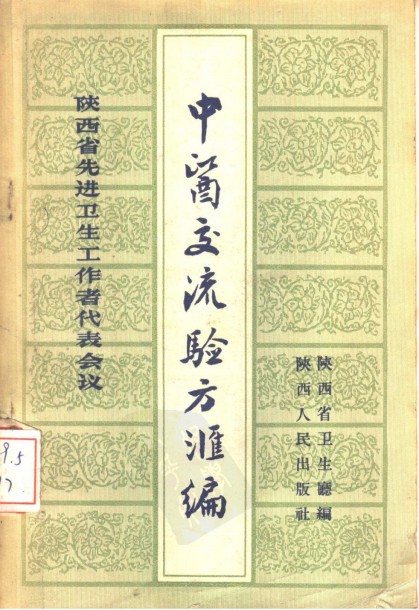 陝西省先进卫生工作者代表会议
中医交流驗方滙編
陝西省卫生廳編
陝西人民出版社
9.5
17.